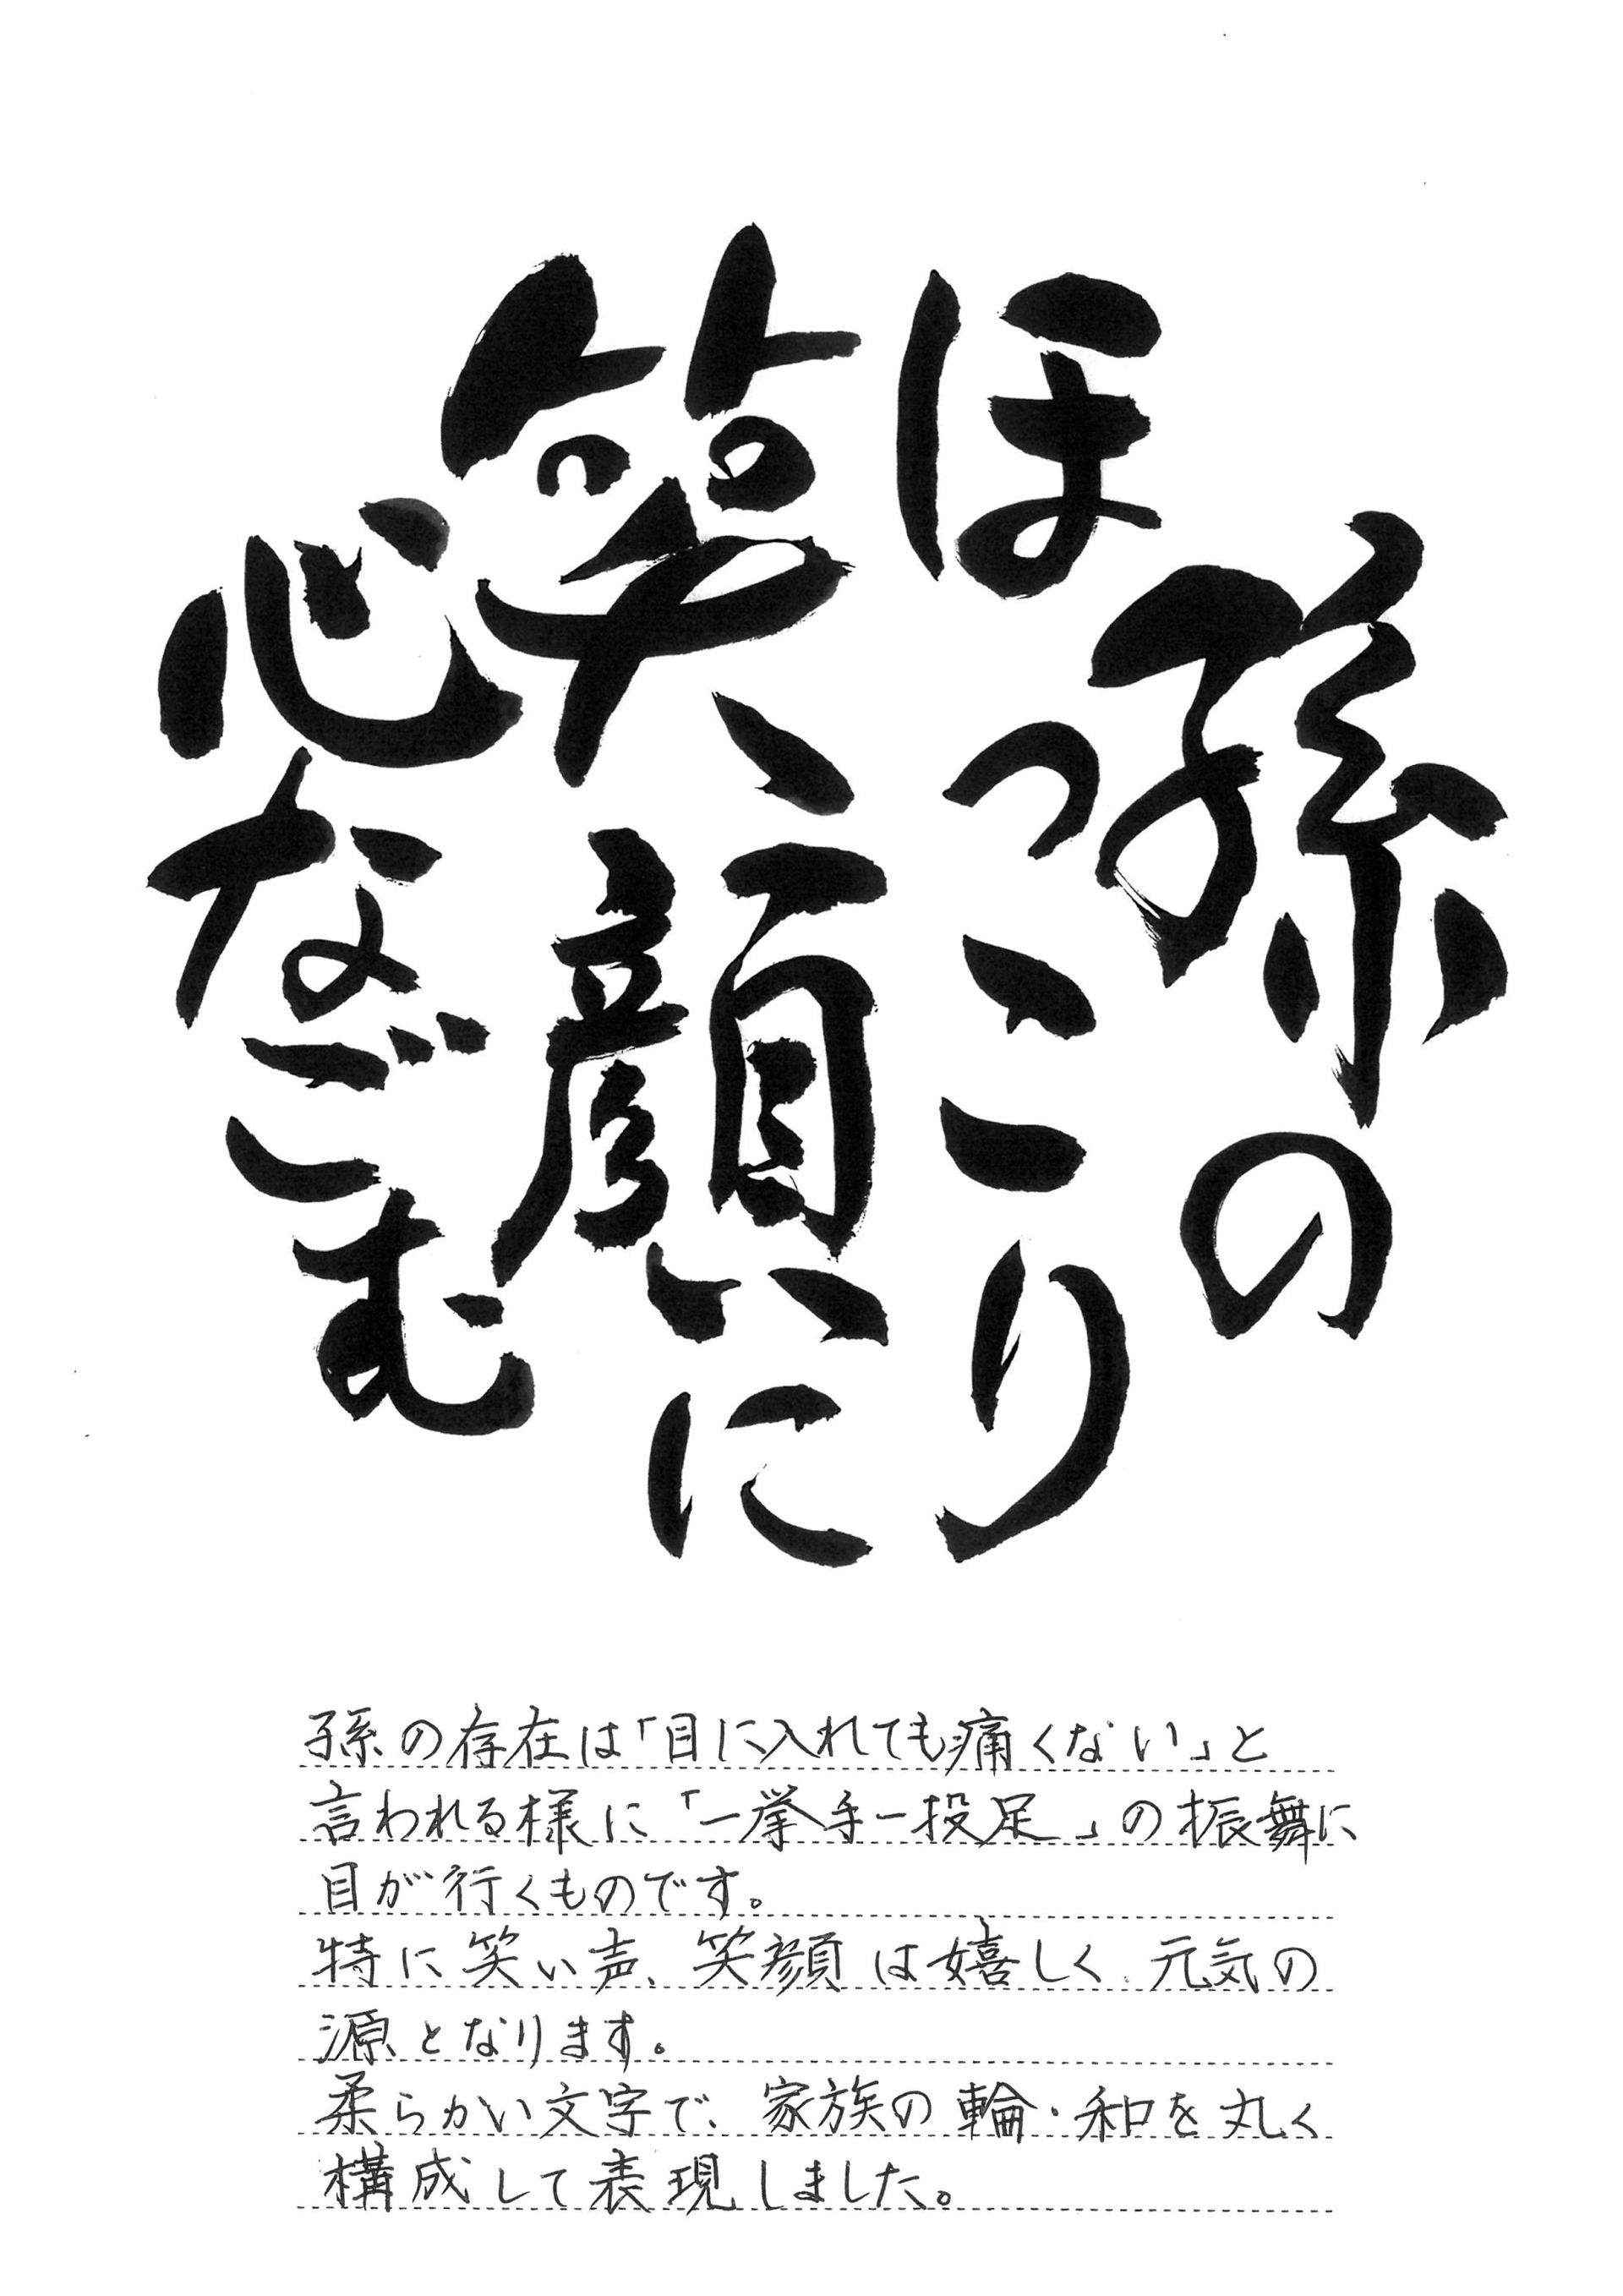 孫の
ほっこり
笑顔に
心なごむ
孫の存在は「目に入れても痛くない」と
言われる様に「一挙手一投足」の振舞に
目が行くものです。
特に笑い声、笑顔は嬉しく、元気の
源となります。
柔らかい文字で、家族の輪・和を丸く
構成して表現しました。